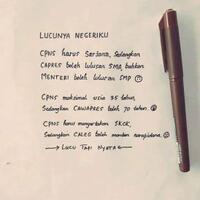 LUCUNYA NEGERIKU
CPNS harus Sarjana, Sedangkan
CAPRES boleh lulusan SMA, bahkan
MENTERI boleh lulusan SMP
CPNS maksimal usia 35 tahun,
Sedangkan CAWAPRES boleh 70 tahun.
CPNS harus menyertakan SKCK,
Sedangkan CALEG boleh mantan narapidana.
LUCU TAPI NYATA